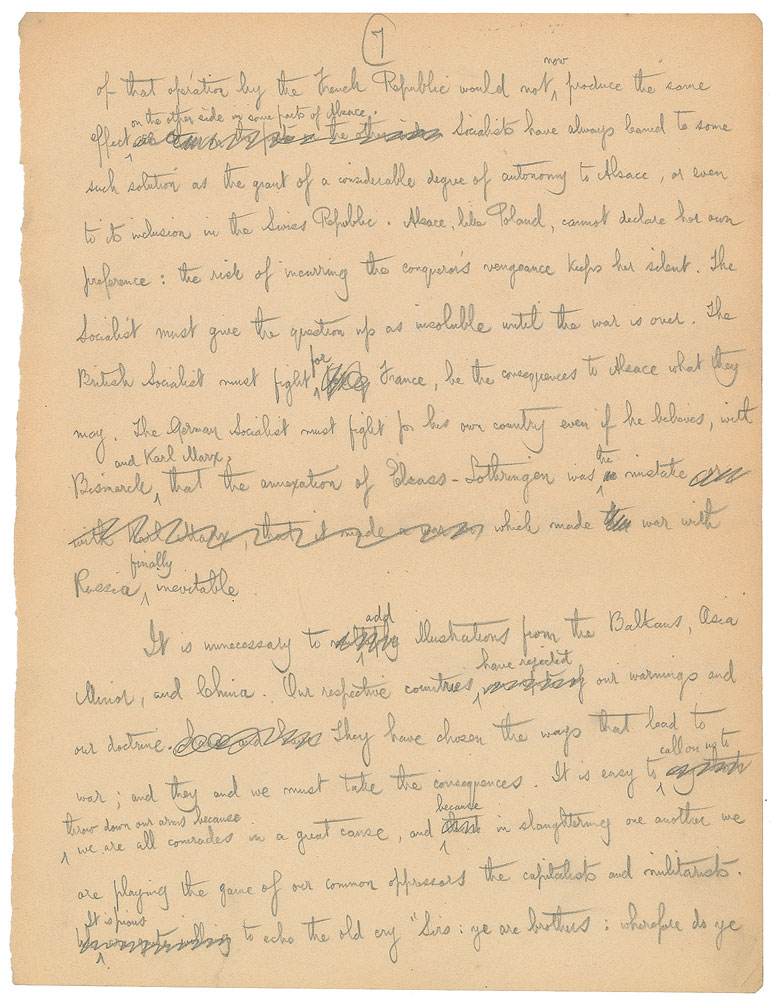 7
now
of that operation by the French Republic would not produce the same
on the other side or some parts of Alsace.
effect Socialists have always leaned to some
such solution as the grant of a considerable degree of autonomy to Alsace, or even
to its inclusion in the Swiss Republic. Alsace, like Poland, cannot declare her own
preference: the risk of incurring the conqueror's vengeance keeps her silent. The
Socialist must give the question up as insoluble until the war is over. The
for
British Socialist must fight France, be the consequences to Alsace what they
may. The German Socialist must fight for his own country even if he believes, with
and Karl Marx, the
Bismarck that the annexation of Elsass-Lothringen was a mistake
with Karl Marx, that it made a war which made war with
finally
Russia inevitable.
add
It is unnecessary to illustrations from the Balkans, Asia
have rejected
Minor, and China. Our respective countries our warnings and
our doctrine. They have chosen the ways that lead to
call on us to
war; and they and we must take the consequences. It is easy to
throw down our arms because because
we are all comrades in a great cause, and in slaughtering one another we
are playing the game of our common oppressors the capitalists and militarists.
It is pious
to echo the old cry "Sirs: ye are brothers: wherefore do ye